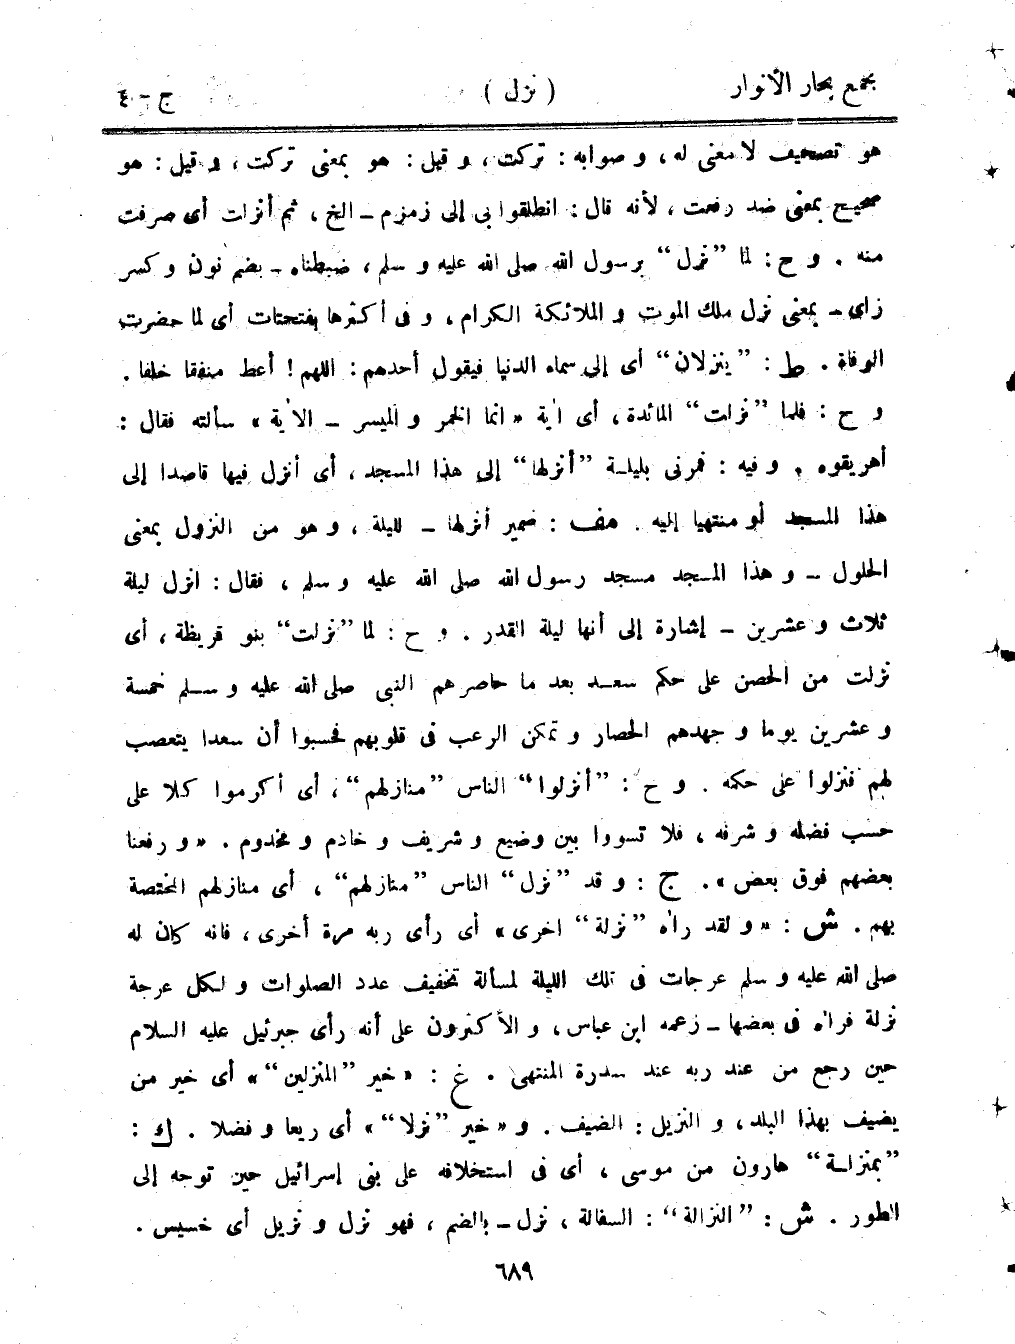 مجمع بحار الأنوار ( نزل ) ج - ٤
هو تصحيف لا معنى له، و صوابه : تركت ، و قيل : هو بمعنى تركت ، و قيل : هو
صحيح بمعنى ضد رفعت ، لأنه قال : انطلقوا بى إلى زمزم – الخ ، ثم أنزلت أى صرفت
منه . و ح : لما ”نزل“ برسول الله صلى الله عليه و سلم ، ضبطناه – بضم نون و كسر
زاى – بمعنى نزل ملك الموت و الملائكة الكرام ، و فى أكثرها بفتحتات أى لما حضرت
الوفاة . ط : ”ينزلان“ أى إلى سماء الدنيا فيقول أحدهم : اللهم ! أعط منفقا خلفا .
و ح : فلما ”نزلت“ المائدة ، أى اٰية « انما الخمر و الميسر – الاٰية » سألته فقال :
أهريقوه . و فيه : فمرنى بليلة ”أنزلها“ إلى هذا المسجد ، أى أنزل فيها قاصدا إلى
هذا المسجد أو منتهيا إليه . مف : ضمير أنزلها – لليلة ، و هو من النزول بمعنى
الحلول – و هذا المسجد مسجد رسول الله صلى الله عليه و سلم ، فقال : انزل ليلة
ثلاث و عشرين – إشارة إلى أنها ليلة القدر . و ح : لما ”نزلت“ بنو قريظة ، أى
نزلت من الحصن على حكم سعد بعد ما حاصرهم النبى صلى الله عليه و سلم خمسة
و عشرين يوما و جهدهم الحصار و تمكن الرعب فى قلوبهم فحسبوا أن سعدا يتعصب
لهم فنزلوا على حكمه . و ح : ”أنزلوا“ الناس ”منازلهم“ ، أى أكرموا كلا على
حسب فضله و شرفه ، فلا تسووا بين وضيع و شريف و خادم و مخدوم . « و رفعنا
بعضهم فوق بعض » . ج : و قد ”نزل“ الناس ”منازلهم“ ، أى منازلهم المختصة
بهم . ش : « و لقد راٰه ”نزلة“ اخرى » أى رأى ربه مرة أخرى ، فانه كان له
صلى الله عليه و سلم عرجات فى تلك الليلة لمسألة تخفيف عدد الصلوات و لكل عرجة
نزلة فراٰه فى بعضها – زعمه ابن عباس ، و الأكثرون على أنه رأى جبرئيل عليه السلام
حين رجع من عند ربه عند سدرة المنتهى . غ : « خير ”المنزلين“ » أى خير من
يضيف بهذا البلد ، و النزيل : الضيف . و « خير ”نزلا“ » أى ريعا و فضلا . ك :
”بمنزلة“ هارون من موسى ، أى فى استخلافه على بنى إسرائيل حين توجه إلى
الطور . ش : ”النزالة“ : السفالة ، نزل – بالضم ، فهو نزل و نزيل أى خسيس .
٦٨٩